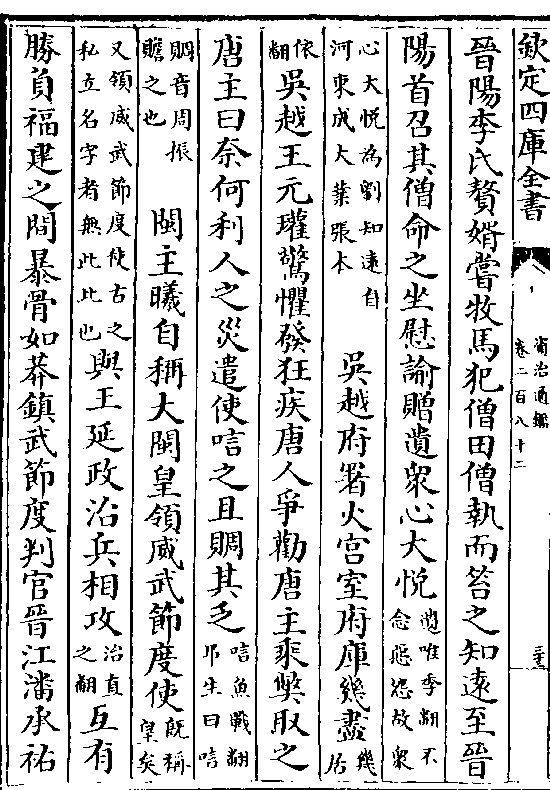 欽定四庫全書
資治通鑑
卷二百八十二
晉陽李氏贅婿嘗牧馬犯僧田僧執而笞之知遠至晉
陽首召其僧命之坐慰諭贈遺衆心大悦遺唯季翻不念慝怨故衆
心大悦為劉知遠自河東成大業張本 吳越府署火宮室府庫幾盡幾居
依翻吳越王元瓘驚懼發狂疾唐人爭勸唐主乘獘取之
唐主曰奈何利人之災遣使唁之且賙其乏唁魚戰翻弔生曰唁
賙音周振贍之也 閩主曦自稱大閩皇領威武節度使既稱皇矣
又領威武節度使古之私立名字者無此比也與王延政治兵相攻治直之翻互有
勝負福建之間暴骨如莽鎮武節度判官晉江潘承祐